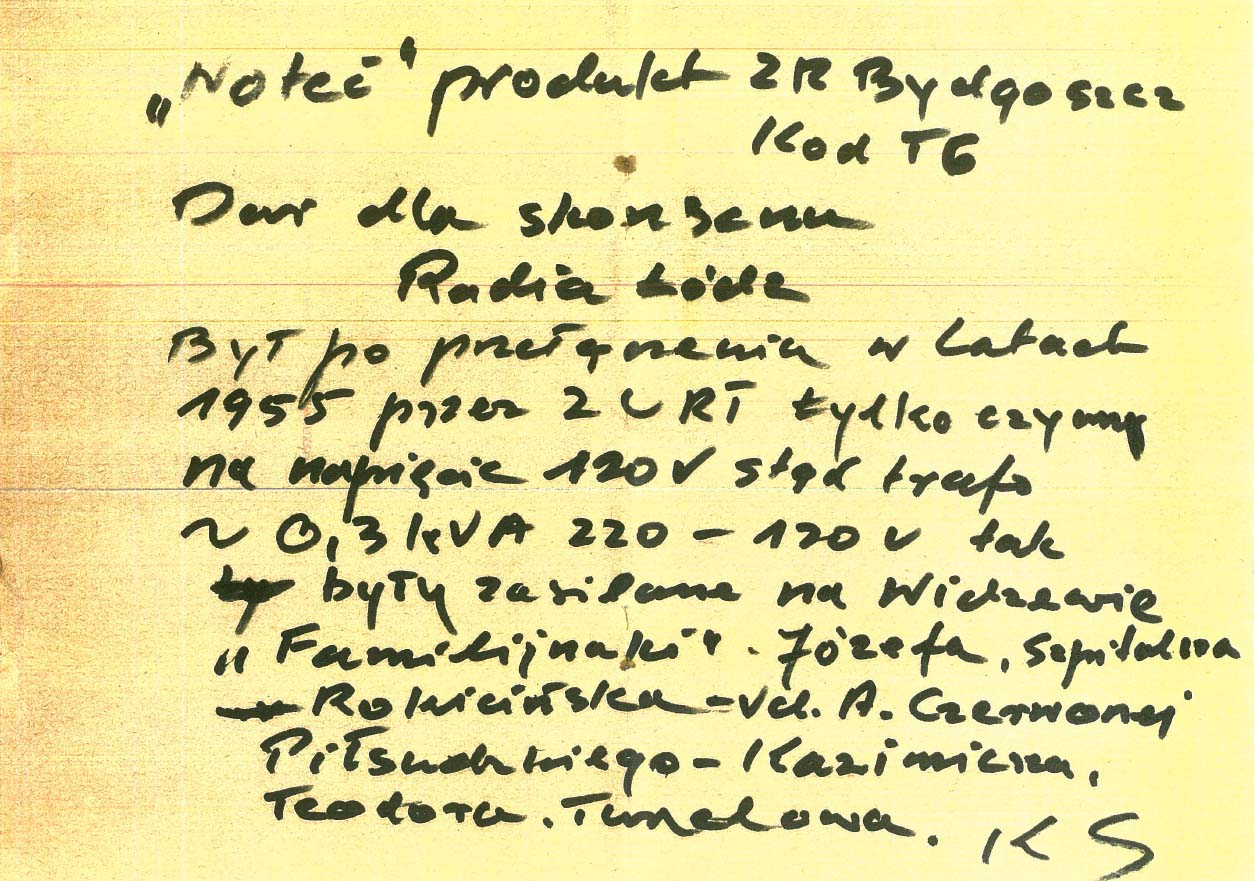 „Noteć" produkt ZR Bydgoszcz
Kod T6
Dar dla skansenu
Radia Łódź
Był po przełączenia w Latach
1955 przez ZURT tylko czynny
na napięcie 120 V stąd trafo
~ 0,3 kVA 220 - 120 V tak
były zasilane na Widzewie
„Familijniaki". Józefa, Szpitalna
Rokicińska - A. Czerwonej
Piłsudskiego - Kazimierza,
Teodora. Tunelowa. KS